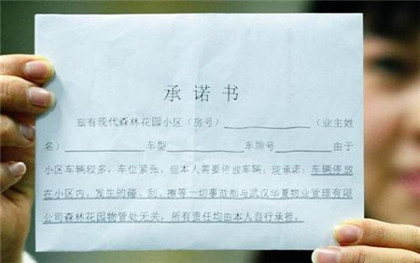 承 诺 书
兹有现代森林花园小区（房号）＿＿＿＿＿＿＿（业主姓
名）＿＿＿＿＿＿车型＿＿＿＿＿＿车牌号＿＿＿＿＿由于
小区车辆较多，车位紧张，但本人需要停放车辆；兹承诺：车辆停放
在小区内，发生的碰、刮、擦等一切事故皆与武汉华夏物业管理有限
公司森林花园物管处无关，所有责任均由本人自行承担。